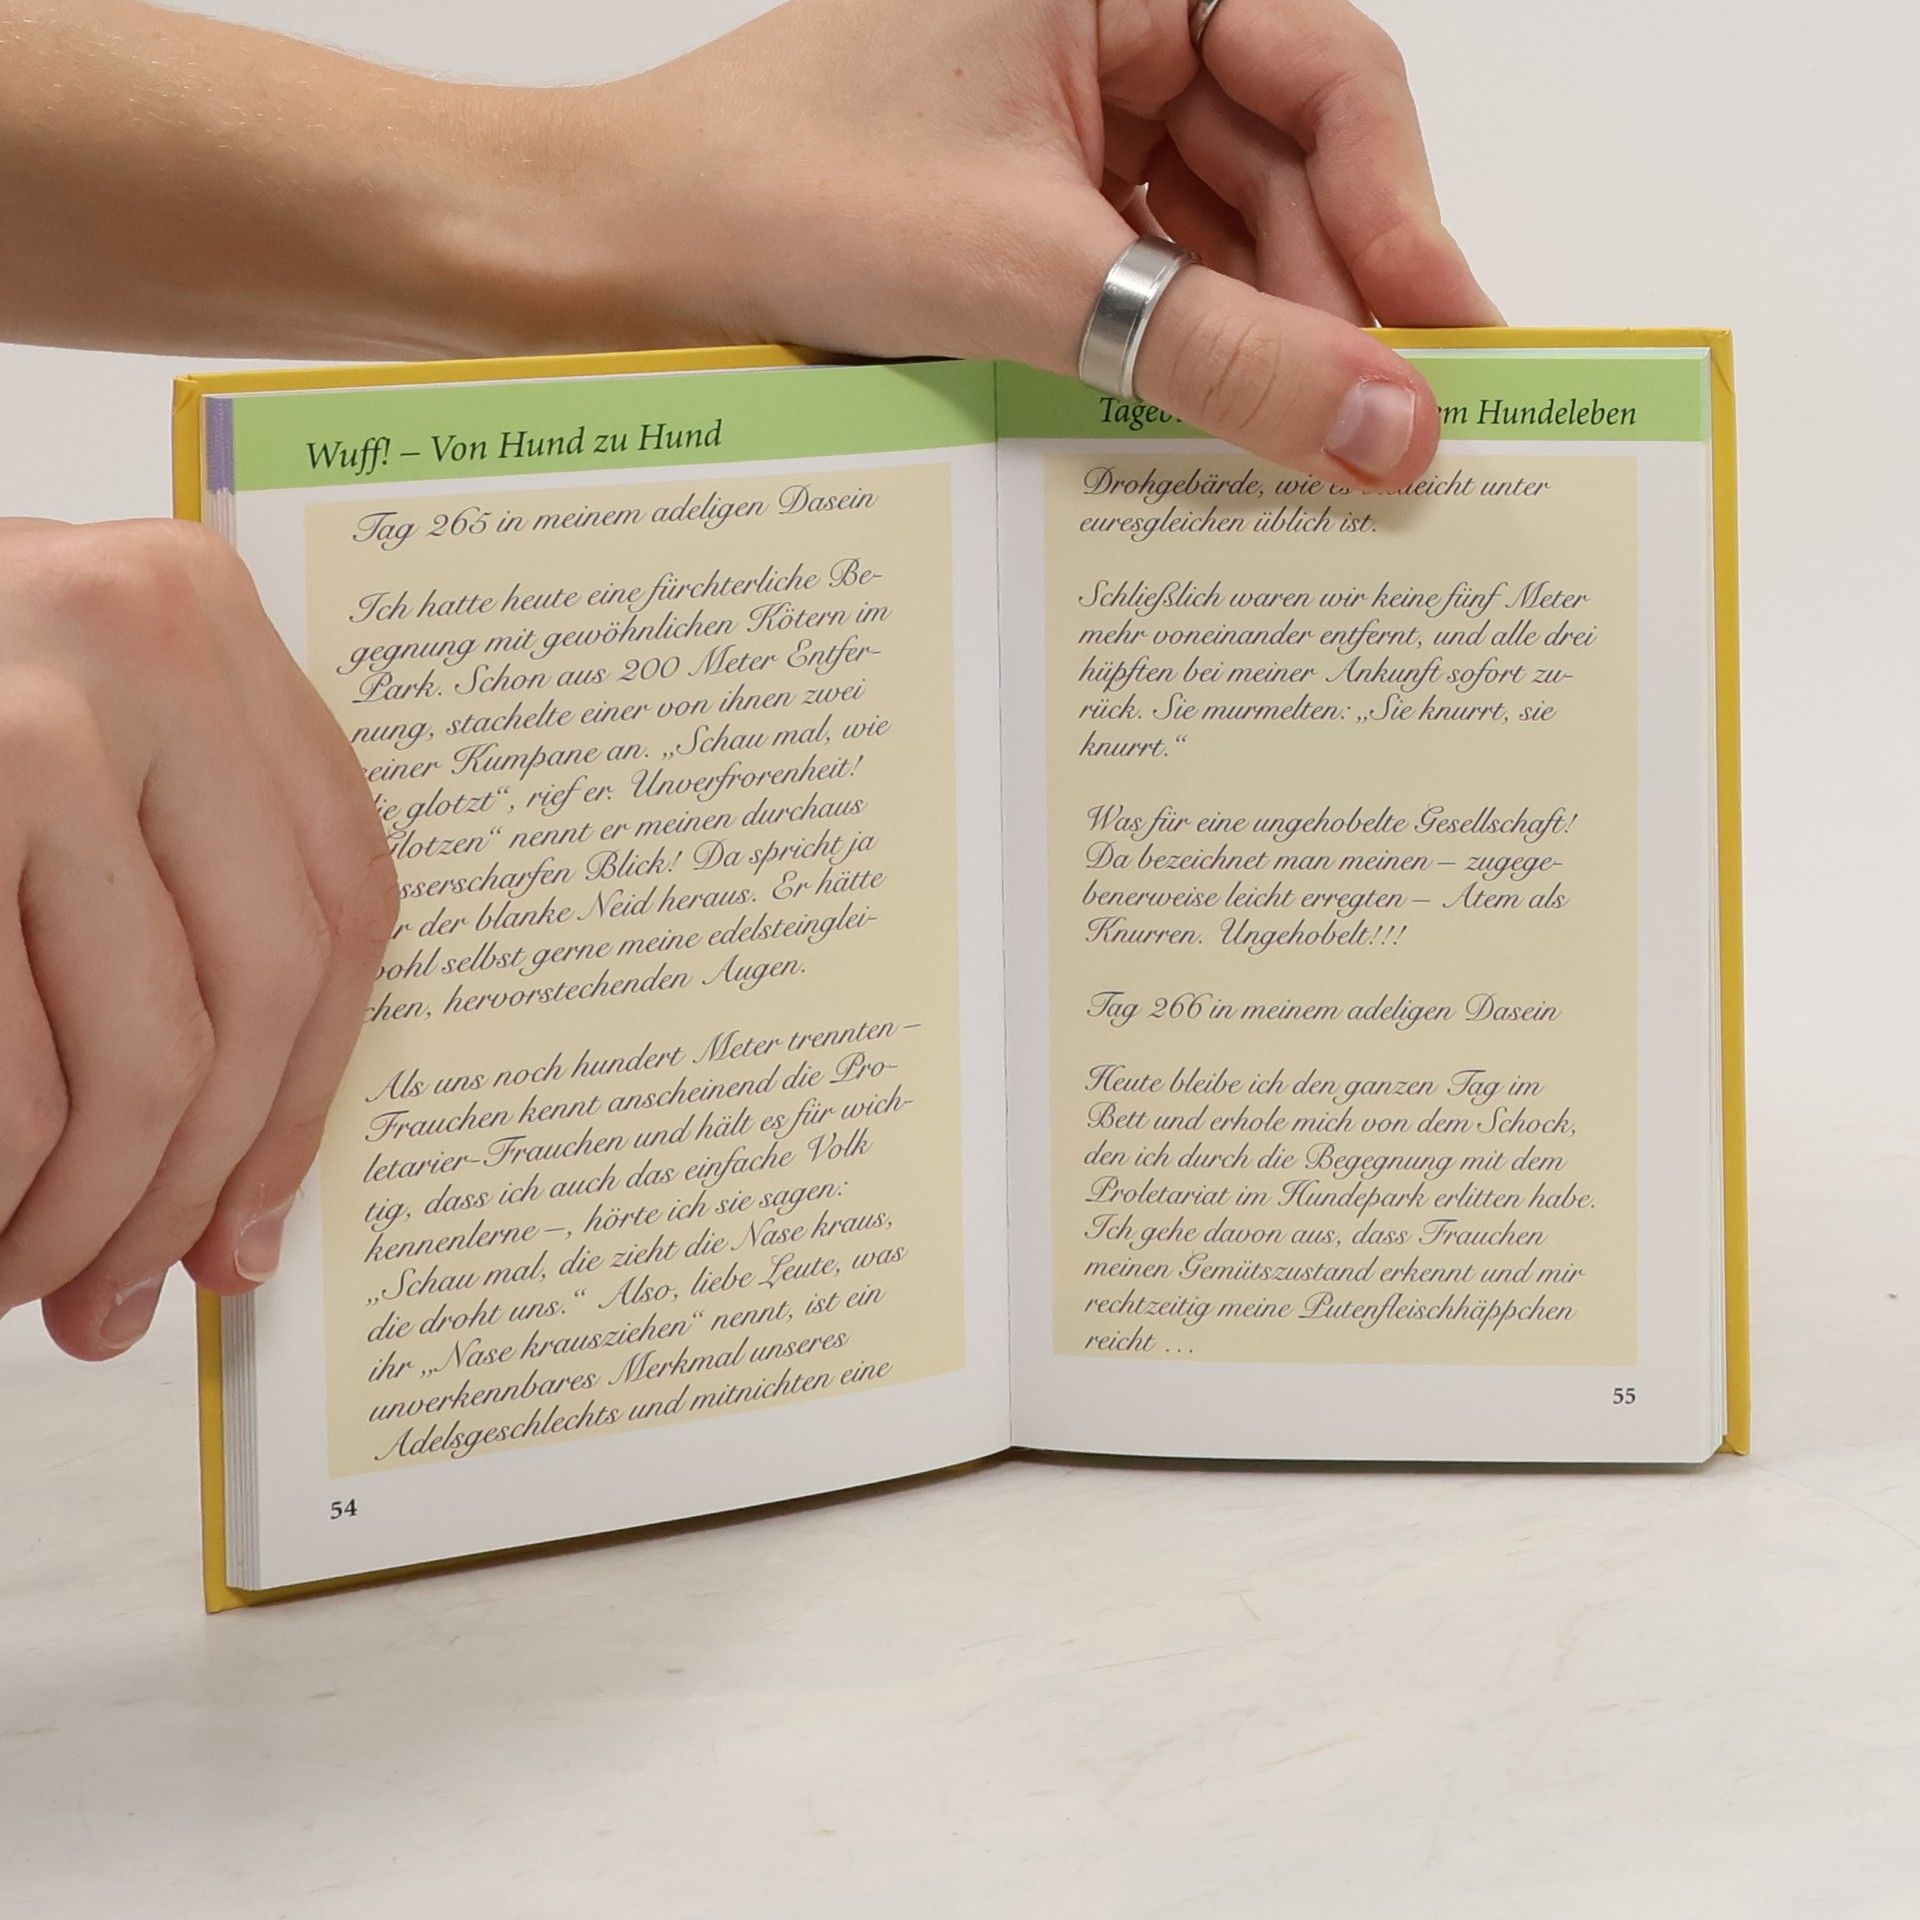 Wuff! – Von Hund zu Hund
Tag 265 in meinem adeligen Dasein
Ich hatte heute eine fürchterliche Be-
gegnung mit gewöhnlichen Kötern im
Park. Schon aus 200 Meter Entfer-
nung, stachelte einer von ihnen zwei
seiner Kumpane an. „Schau mal, wie
die glotzt“, rief er. Unverfrorenheit!
„Glotzen“ nennt er meinen durchaus
messerscharfen Blick! Da spricht ja
der blanke Neid heraus. Er hätte
wohl selbst gerne meine edelsteinglei-
chen, hervorstechenden Augen.
Als uns noch hundert Meter trennten –
Frauchen kennt anscheinend die Pro-
letarier-Frauchen und hält es für wich-
tig, dass ich auch das einfache Volk
kennenlerne –, hörte ich sie sagen:
„Schau mal, die zieht die Nase kraus,
die droht uns.“ Also, liebe Leute, was
ihr „Nase krausziehen“ nennt, ist ein
unverkennbares Merkmal unseres
Adelsgeschlechts und mitnichten eine
54
Hundeleben
Drohgebärde, wie es vielleicht unter
euresgleichen üblich ist.
Schließlich waren wir keine fünf Meter
mehr voneinander entfernt, und alle drei
hüpften bei meiner Ankunft sofort zu-
rück. Sie murmelten: „Sie knurrt, sie
knurrt.“
Was für eine ungehobelte Gesellschaft!
Da bezeichnet man meinen – zugege-
benerweise leicht erregten – Atem als
Knurren. Ungehobelt!!!
Tag 266 in meinem adeligen Dasein
Heute bleibe ich den ganzen Tag im
Bett und erhole mich von dem Schock,
den ich durch die Begegnung mit dem
Proletariat im Hundepark erlitten habe.
Ich gehe davon aus, dass Frauchen
meinen Gemütszustand erkennt und mir
rechtzeitig meine Putenfleischhäppchen
reicht ...
55